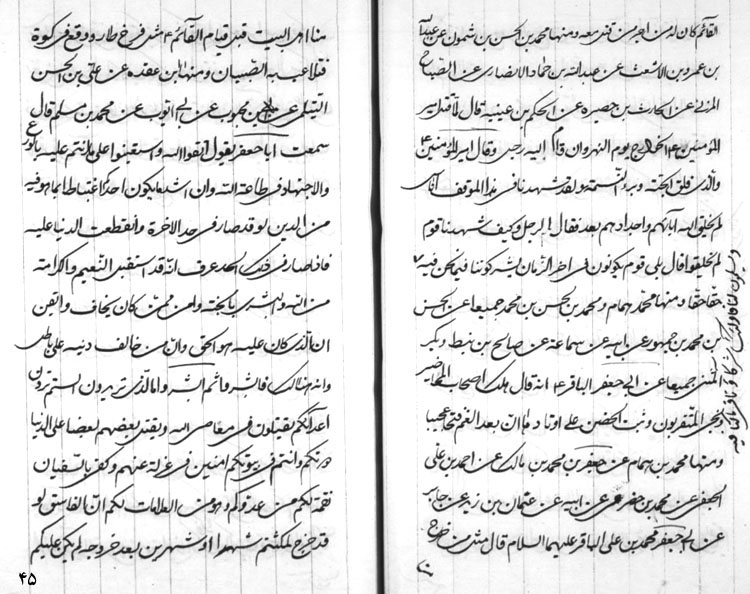 القائم كان له من اجر من قتل معه ومنها محمد بن الحسن بن شمون عن عبدالله
بن عمرو بن الاشعث عن عبدالله بن حماد الانصارى عن الصباح
المزنى عن الحارث بن حصيره عن الحكم بن عيينه قال لما قتل امير
المؤمنين ع الخوارج يوم النهروان قام اليه رجل وقال امير المؤمنين ع
والذى فلق الحبة وبرء النسمة لقد شهدنا فى هذا الموقف اناس
لم يخلق الله اباءهم واجدادهم بعد فقال الرجل وكيف شهدنا قوم
لم يخلقوا قال بلى قوم يكونون فى اخر الزمان يشركوننا فيما نحن فيه
ويسلمون لنا فاولئك شركاؤنا فيما كنا فيه
حقا حقا ومنها محمد همام ومحمد بن الحسن بن محمد جميعا عن الحسن
بن محمد بن جمهور عن ابيه عن سماعة عن صالح بن نبط وبكر
المثنى جميعا عن ابى جعفر الباقر ع انه قال هلك اصحاب المحاضير
ونجى المقربون وثبت الحصن على اوتادها ان بعد الغم فتحا عجيبا
ومنها محمد بن همام عن جعفر بن محمد بن مالك عن احمد بن على
الجعفى عن محمد بن عن ابيه عن عثمان بن زيد عن جابر
عن ابى جعفر محمد بن على الباقر عليهما السلام قال مثل من خرج
منا اهل البيت قبل قيام القائم ع مثل فرخ طار ووقع فى كوة
فتلاعب به الصبيان ومنها ابن عقده عن على بن الحسن
التيملى عن بن محبوب عن ابى ايوب عن محمد بن مسلم قال
سمعت ابا جعفر ع يقول اتقوا الله واستعينوا على ما انتم عليه بالورع
والاجتهاد فى طاعة الله وان اشد ما يكون احدكم اغتباطا بما هو فيه
من الدين لو قد صار فى حد الاخرة وانقطعت الدنيا عليه
فاذا صار فى ذلك الحد عرف انه قد استقبل النعيم والكرامة
من الله والبشرى بالجنة وامن ممن كان يخاف وايقن
ان الذى كان عليه هو الحق وان من خالف دينه على باطل
وانه هالك فابشروا ثم ابشروا ما الذى تريدون الستم ترون
اعدائكم يقتتلون فى معاصى الله ويقتل بعضهم بعضا على الدنيا
دونكم وانتم فى بيوتكم امنين فى عزلة عنهم وكفى بالسفيانى
نقمة لكم من عدوكم وهو من العلامات لكم ان الفاسق لو
قد خرج لمكثتم شهرا او شهرين بعد خروجه لم يكن عليكم
۴۵